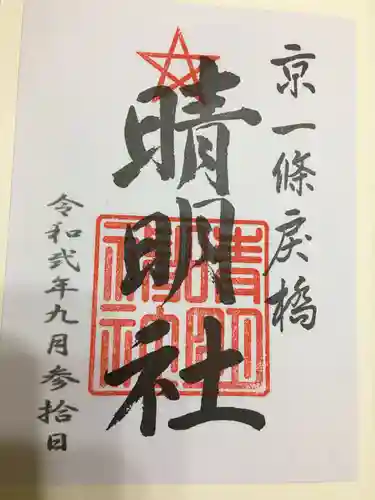 京一條戻橋
晴明社
令和弐年九月参拾日
晴明神社